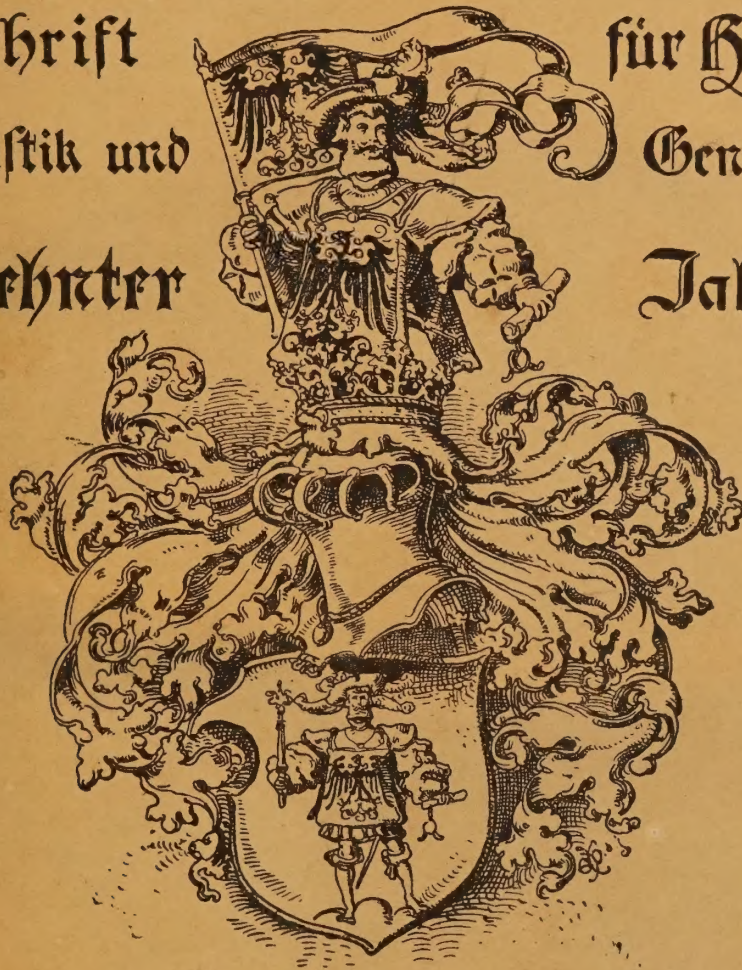 hrift für H
stik und Gen
ehnter Jah